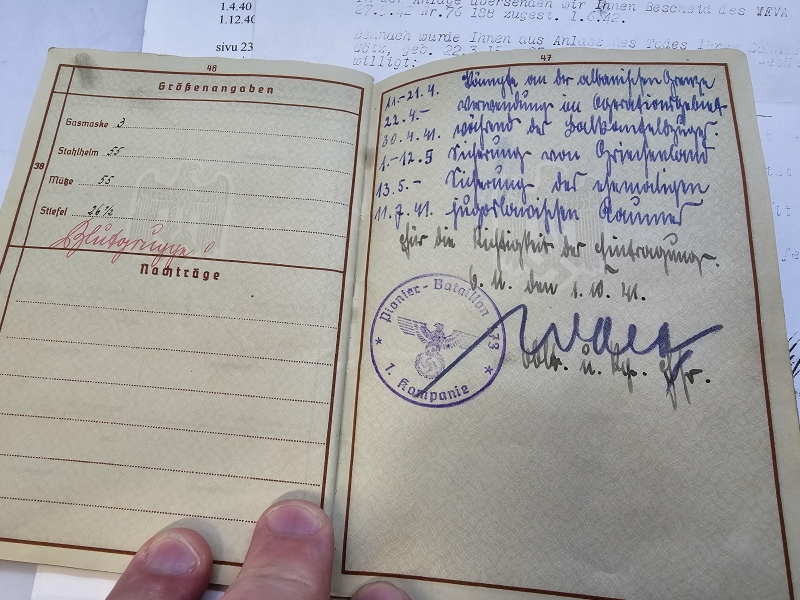 1.4.40
1.12.40
sivu 23
In der Anlage übersenden wir Ihnen Bescheid des WFVA
27.5.42 Nr.76 188 zugest. 1.6.42.
Demnach wurde Ihnen aus Anlass des Todes Ihres
Götz, geb. 22.3.
willigt:
46
Größenangaben
38
Gasmaske 3
Stahlhelm 55
Mütze 55
Stiefel 26½
Blutgruppe 0
Nachträge
47
11.-21.4. Kämpfe an der albanischen Grenze
22.4.- Verwendung im Operationsgebiet
30.4.41. während des Balkanfeldzuges.
1.-12.5 Sicherung von Griechenland
13.5.- Sicherung des ehemaligen
11.7.41. jugoslawischen Raumes
Für die Richtigkeit der Eintragung.
O. U. den 1.10.41.
Pionier-Bataillon 73
1. Kompanie
Oblt. u. Kp. Fhr.